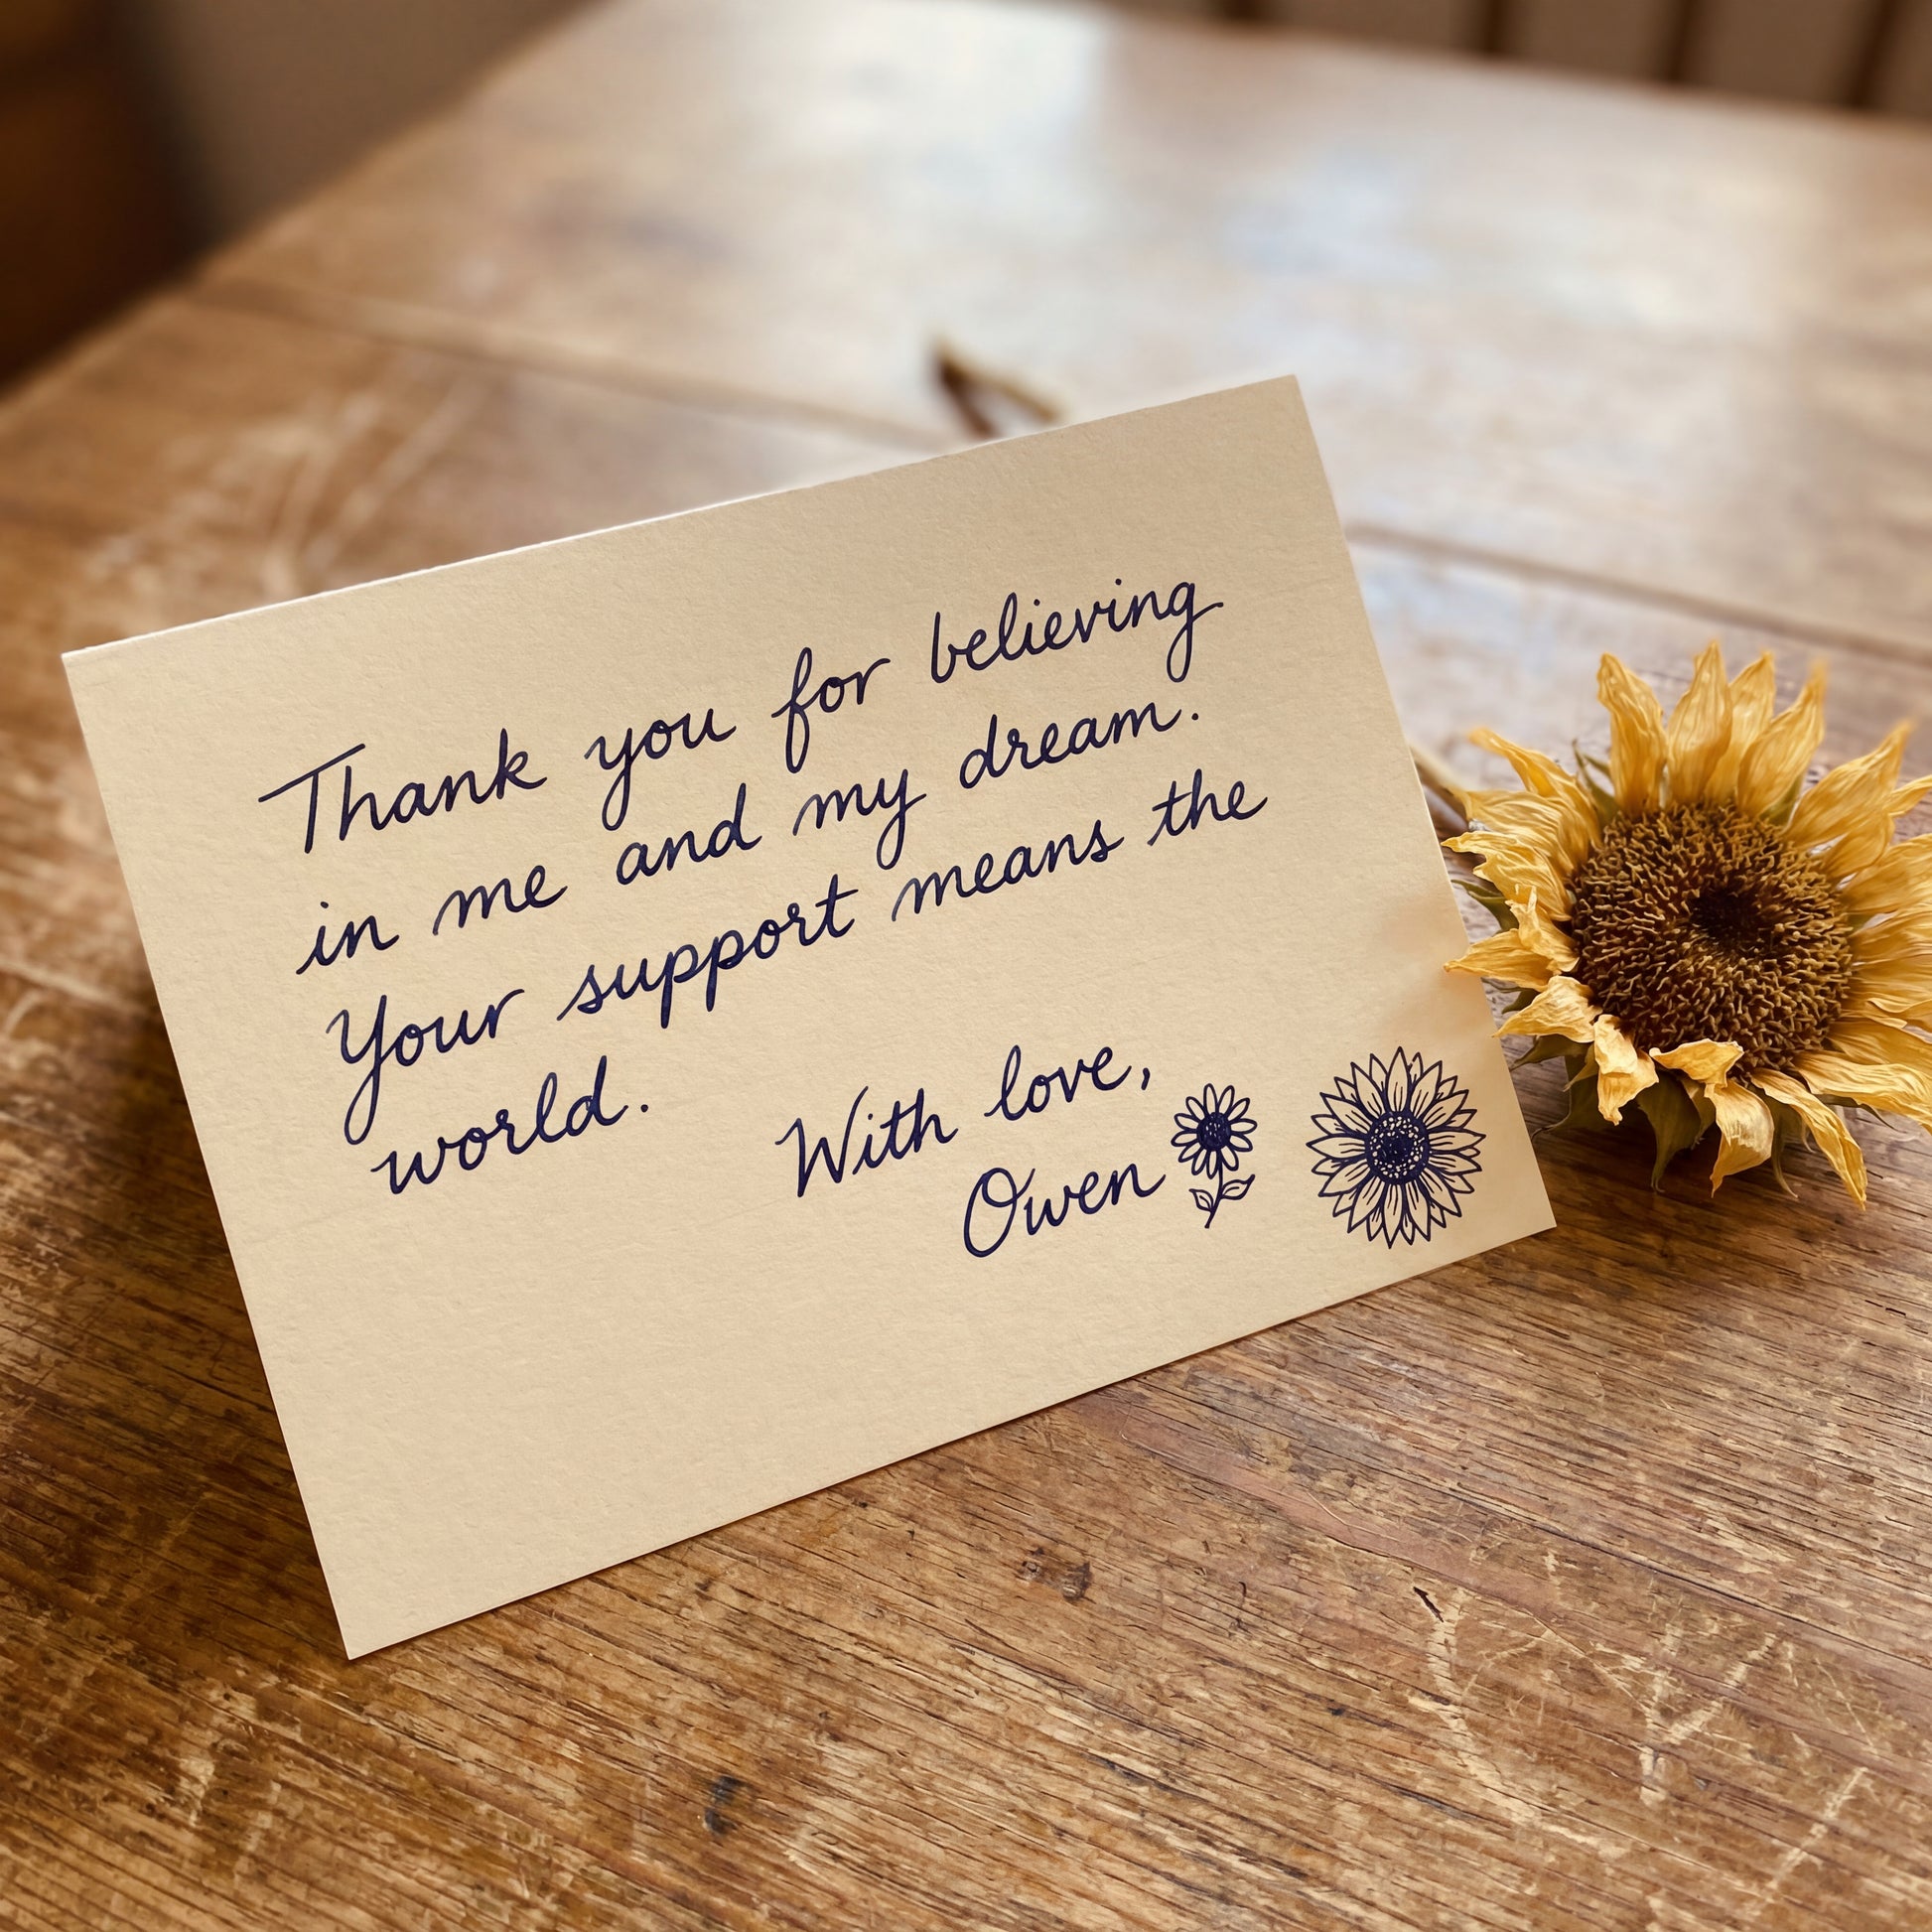 Thank you for believing
in me and my dream.
Your support means the
world.
With love,
Owen